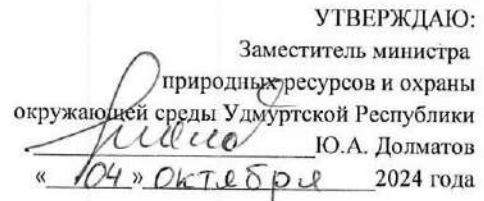 УТВЕРЖДАЮ:
Заместитель министра
природных ресурсов и охраны
окружающей среды Удмуртской Республики
Ю.А. Долматов
« 04 » октября 2024 года